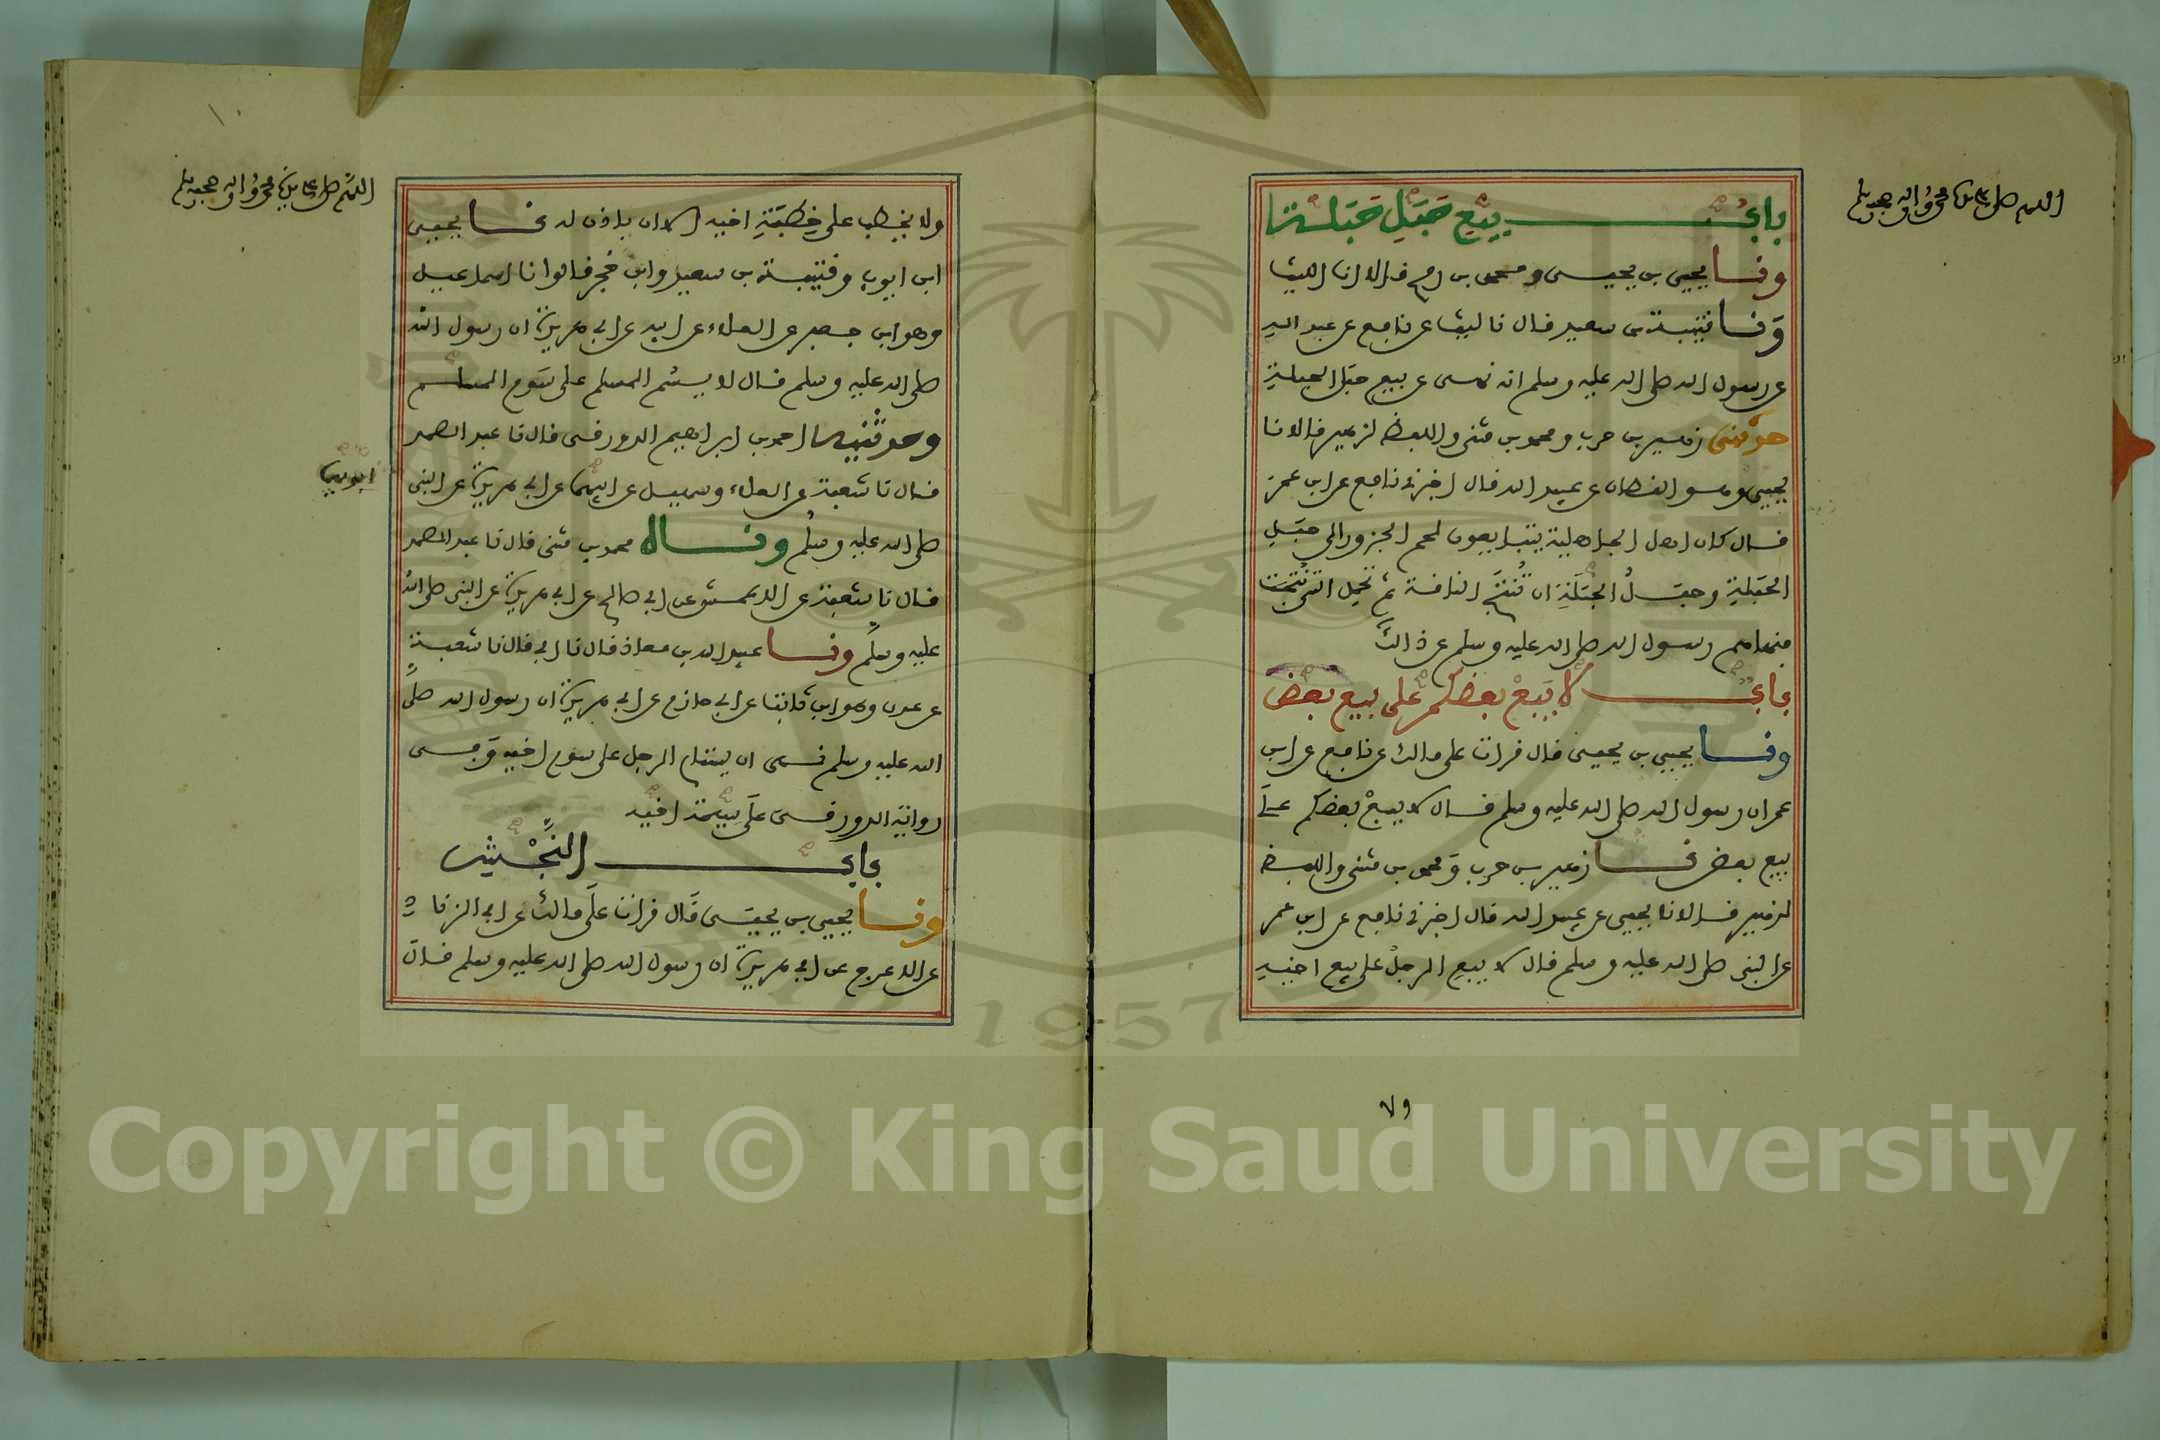 اللهم صل على سيدنا محمد وآله وصحبه وسلم
باب بيع حبل حبلة
ونا يحيى بن يحيى ومحمد بن رمح قالا انا الليث
ونا قتيبة بن سعيد قال نا ليث عن نافع عن عبد الله
عن رسول الله صلى الله عليه وسلم انه نهى عن بيع حبل الحبلة
حدثنى زهير بن حرب ومحمد بن مثنى واللفظ لزهير قالا نا
يحيى وهو القطان عن عبيد الله قال اخبرنى نافع عن ابن عمر
قال كان اهل الجاهلية يتبايعون لحم الجزور الى حبل
الحبلة وحبل الحبلة ان تنتج الناقة ثم تحمل التى نتجت
فنهاهم رسول الله صلى الله عليه وسلم عن ذالك
باب لا يبع بعضكم على بيع بعض
ونا يحيى بن يحيى قال قرات على مالك عن نافع عن ابن
عمر ان رسول الله صلى الله عليه وسلم قال لا يبع بعضكم على
بيع بعض نا زهير بن حرب ومحمد بن مثنى واللفظ
لزهير قالا نا يحيى عن عبيد الله قال اخبرنى نافع عن ابن عمر
عن النبى صلى الله عليه وسلم قال لا يبع الرجل على بيع اخيه
٧٩
اللهم صل على سيدنا محمد وآله وصحبه وسلم
ولا يخطب على خطبة اخيه الا ان ياذن له نا يحيى
ابن ايوب وقتيبة بن سعيد وابن حجر قالوا نا اسماعيل
وهو ابن جعفر عن العلاء عن ابيه عن ابى هريرة ان رسول الله
صلى الله عليه وسلم قال لا يسم المسلم على سوم المسلم
وحدثنيه احمد بن ابراهيم الدورقى قال نا عبد الصمد
قال نا شعبة عن العلاء وسهيل عن ابيهما عن ابى هريرة عن النبى
ابويهما
صلى الله عليه وسلم وناه محمد بن مثنى قال نا عبد الصمد
قال نا شعبة عن الاعمش عن ابى صالح عن ابى هريرة عن النبى صلى الله
عليه وسلم ونا عبيد الله بن معاذ قال نا ابى قال نا شعبة
عن عدى وهو ابن ثابت عن ابى حازم عن ابى هريرة ان رسول الله صلى
الله عليه وسلم نهى ان يستام الرجل على سوم اخيه وفى
رواية الدورقى على سيمة اخيه
باب النجش
ونا يحيى بن يحيى قال قرات على مالك عن ابى الزناد
عن الاعرج عن ابى هريرة ان رسول الله صلى الله عليه وسلم قال
1957
Copyright © King Saud University